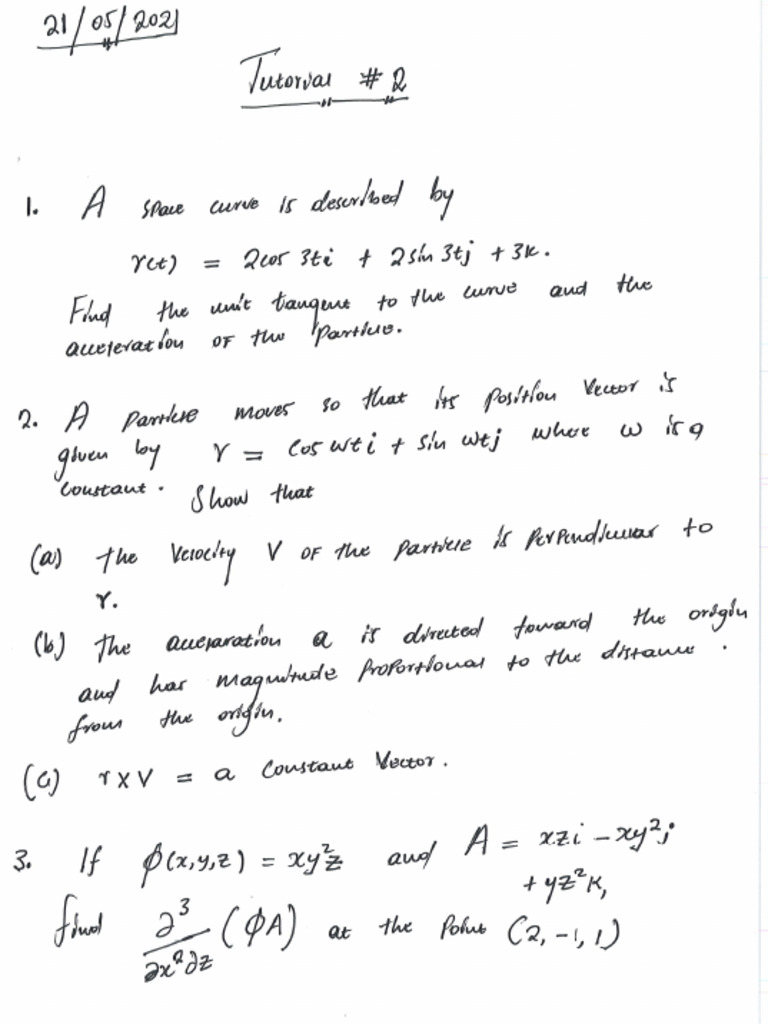 21/05/2021
Tutorial # 2
1. A space curve is described by
r(t) = 2cos 3ti + 2sin 3tj + 3k.
Find the unit tangent to the curve and the
acceleration of the particle.
2. A particle moves so that its position vector is
given by r = cos wti + sin wtj where ω is a
constant. Show that
(a) the velocity V of the particle is perpendicular to
r.
(b) The acceleration a is directed toward the origin
and has magnitude proportional to the distance .
from the origin.
(c) r x V = a constant vector.
3. If ϕ(x,y,z) = xy²z and A = xzi – xy²j
+ yz²k,
find ∂³/∂x²∂z (ϕA) at the point (2,-1,1)